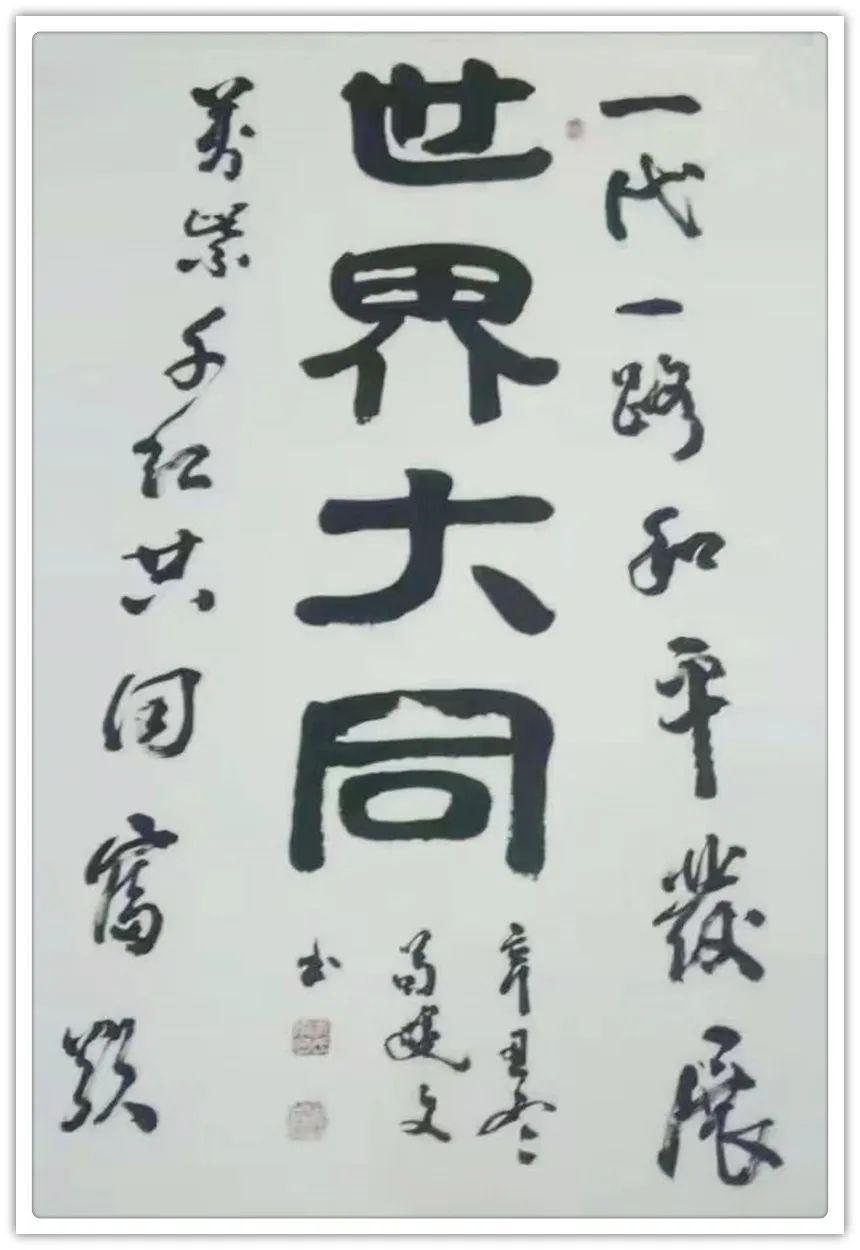 一代一路和平發展
世界大同
萬紫千紅共同奮
辛丑冬
苟建文
书